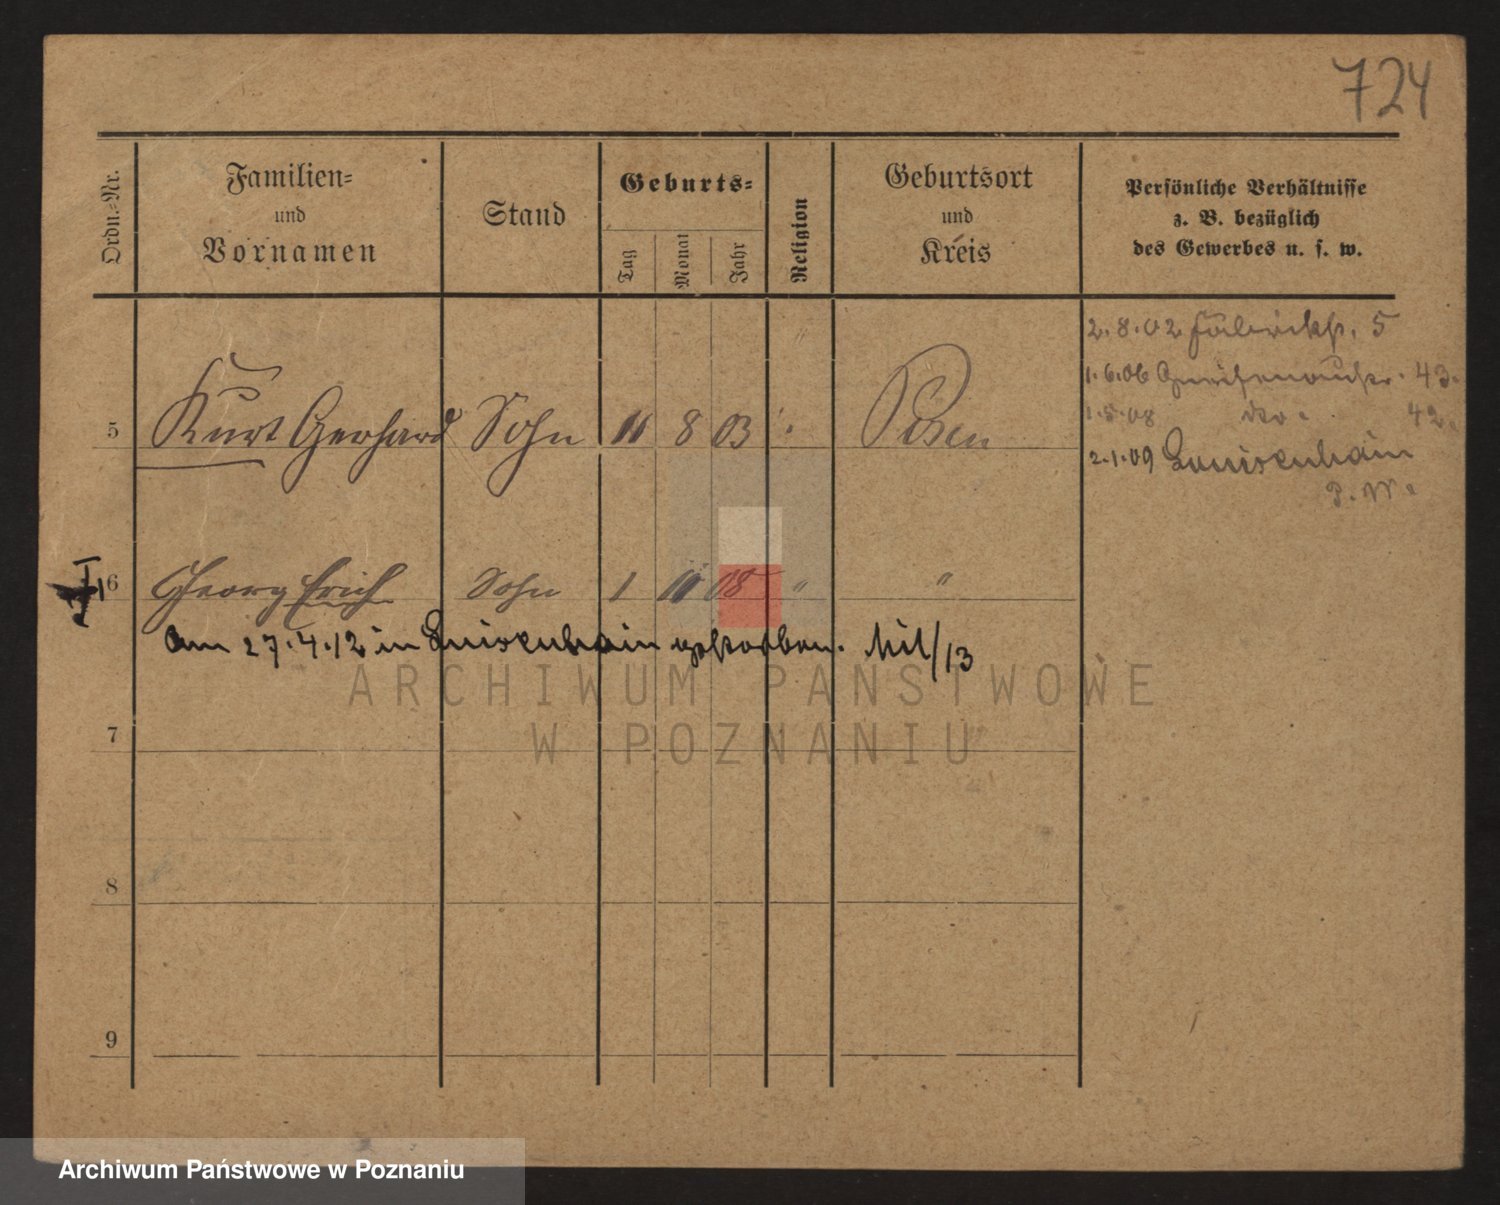 724
Ordn.-Nr.
Familien-
und
Vornamen
Stand
Geburts-
Tag
Monat
Jahr
Religion
Geburtsort
und
Kreis
Persönliche Verhältnisse
z. B. bezüglich
des Gewerbes u. s. w.
2.8.02 Fabrikstr. 5
1.6.06 Gneisenaustr. 43.
1.5.08 do. 42.
2.1.09 Luisenhain
P. W.
5 Kurt Gerhard Sohn 11 8 03 " Posen
6 Georg Erich Sohn 1 11 08 " "
Am 27.4.12 in Luisenhain gestorben. /13
7
8
9
ARCHIWUM PAŃSTWOWE
W POZNANIU
Archiwum Państwowe w Poznaniu